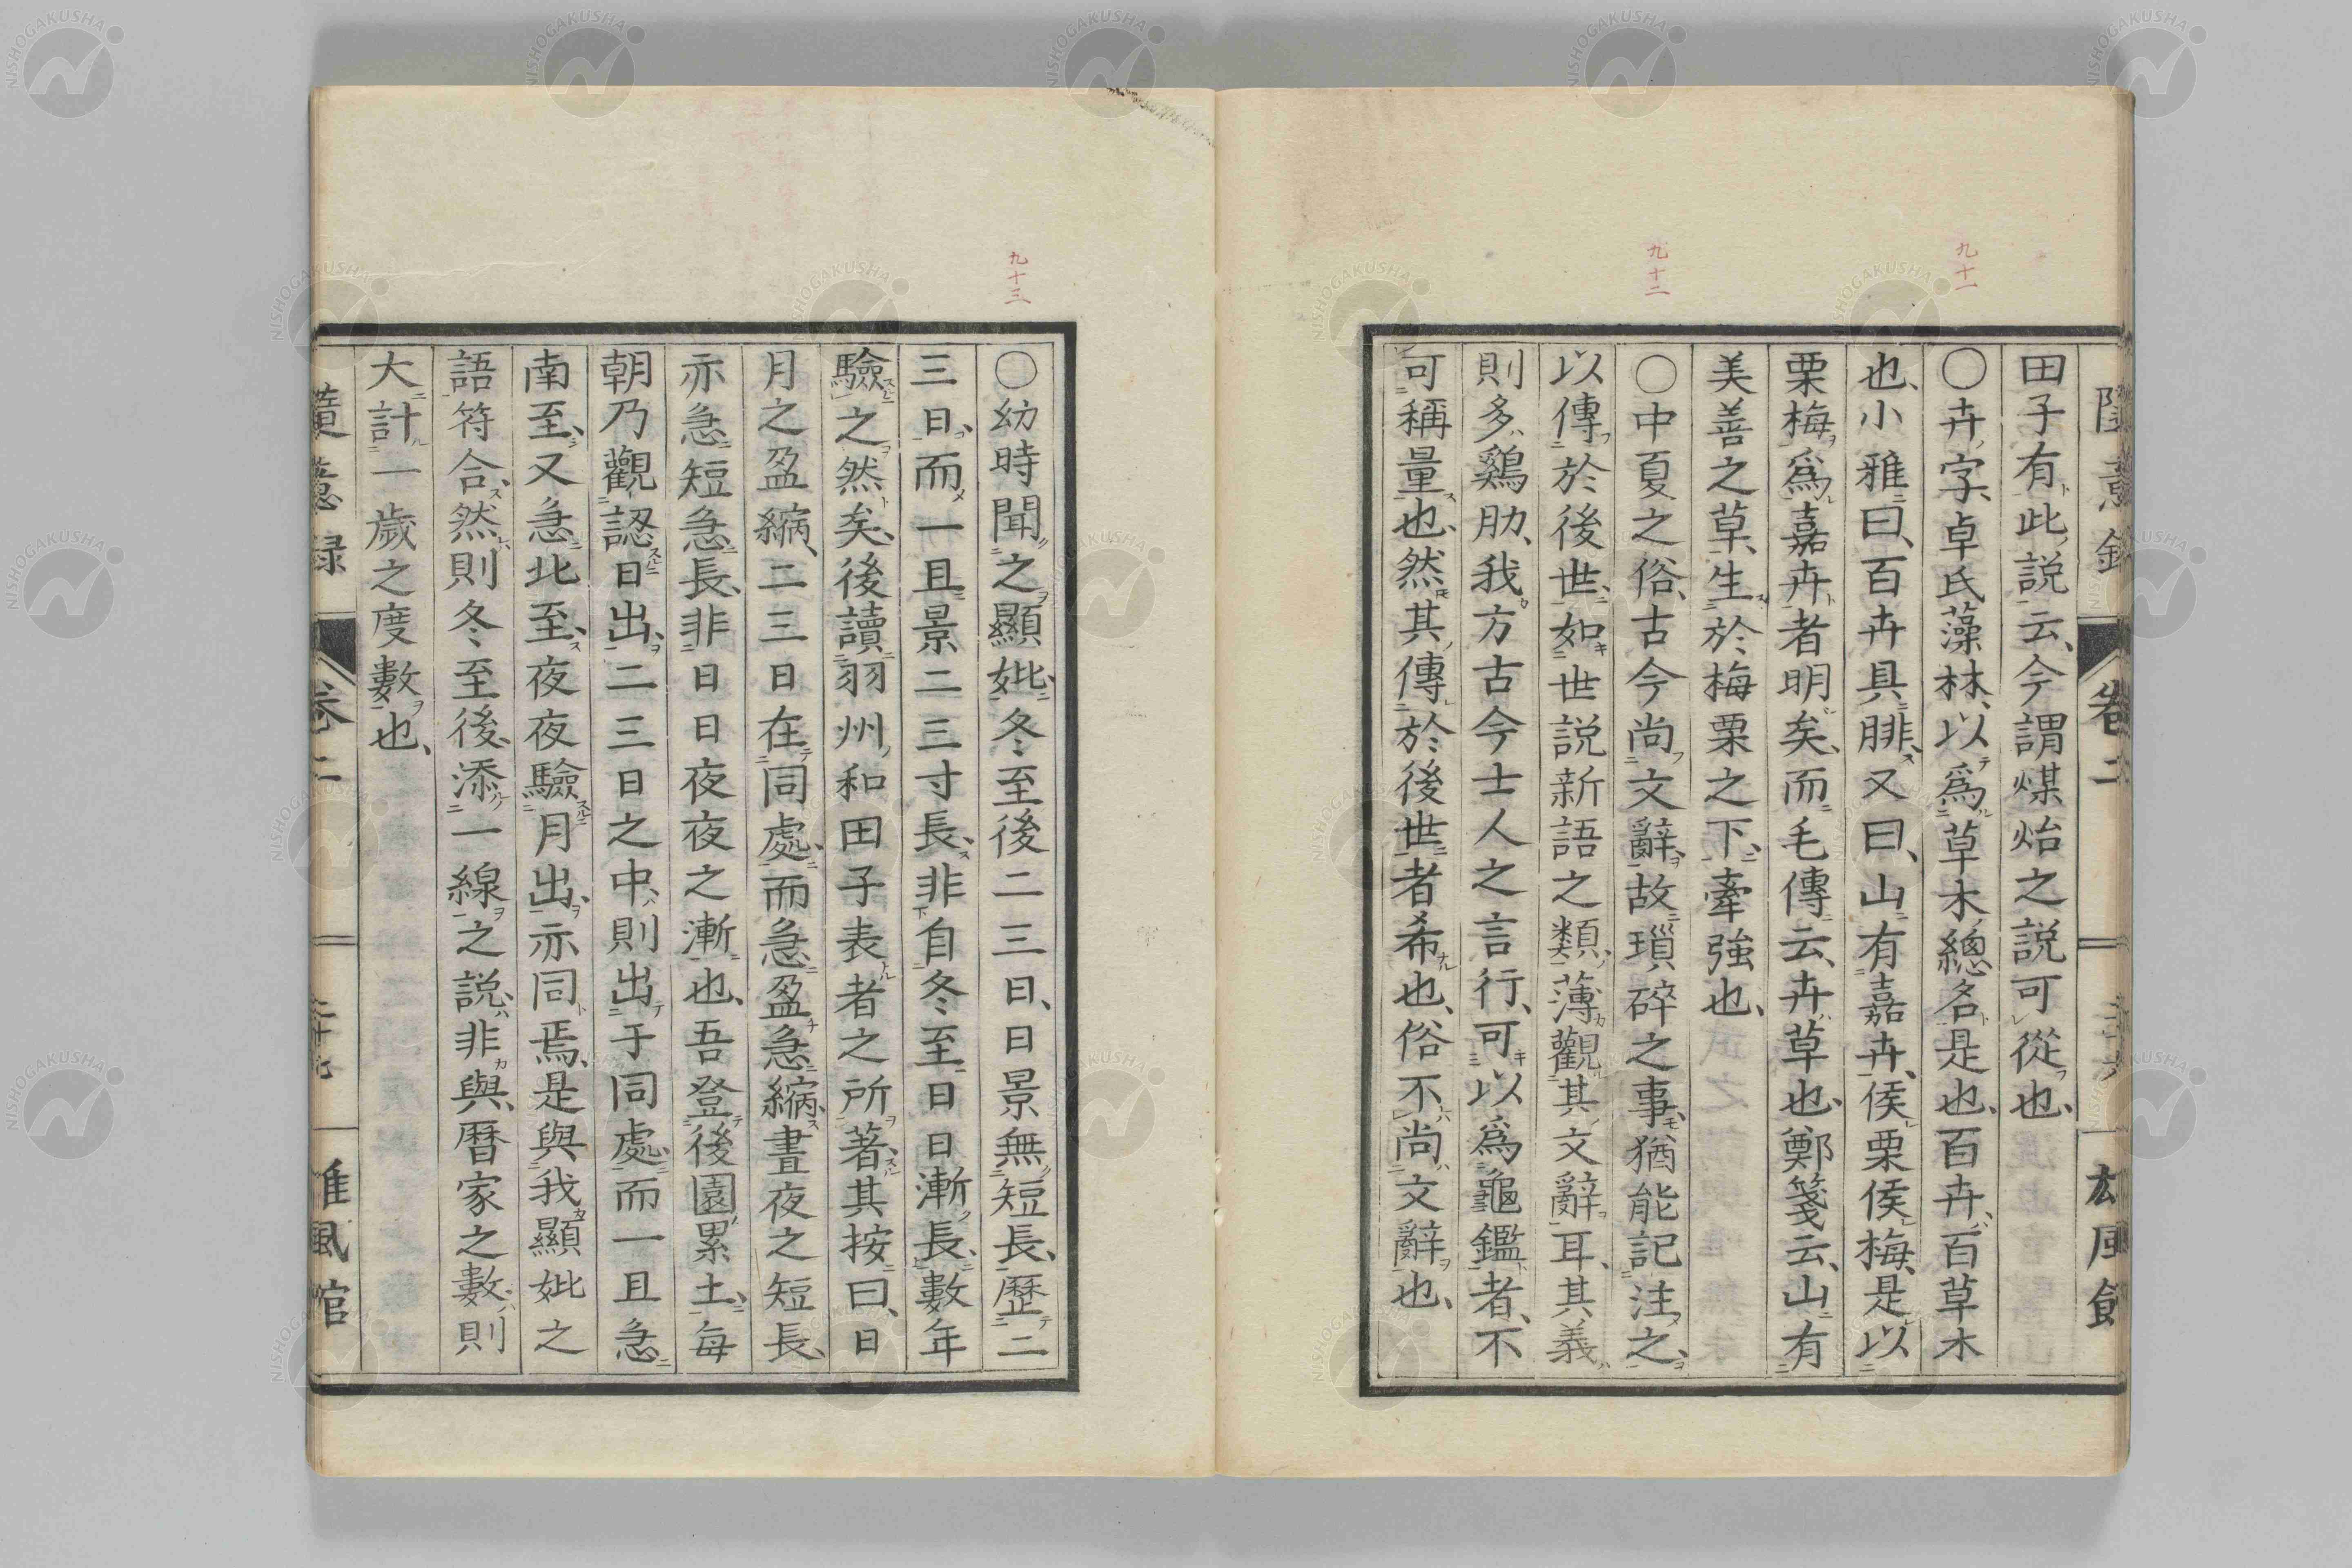 九十一
九十二
卷二
田子有此説云、今謂煤炲之説可從也、
○卉字、卓氏藻林、以爲草木總名是也、百卉、百草木
也、小雅曰、百卉具腓、又曰、山有嘉卉、侯栗侯梅、是以
栗梅爲嘉卉者明矣、而毛傳云、卉草也、鄭箋云、山有
美善之草、生於梅栗之下、牽強也、
○中夏之俗、古今尚文辭、故瑣碎之事、猶能記注之、
以傳於後世、如世説新語之類、薄觀其文辭耳、其義
則多鷄肋、我方古今士人之言行、可以爲龜鑑者、不
可稱量也、然其傳於後世者希也、俗不尚文辭也、
九十三
○幼時聞之顯妣、冬至後二三日、日景無短長、歷二
三日、而一旦景二三寸長、非自冬至日日漸長、數年
驗之然矣、後讀羽州和田子表者之所著、其按曰、日
月之盈縮、二三日在同處、而急盈急縮、晝夜之短長、
亦急短急長、非日日夜夜之漸也、吾登後園累土、每
朝乃觀認日出、二三日之中、則出于同處、而一旦急
南至、又急北至、夜夜驗月出、亦同焉、是與我顯妣之
語符合、然則冬至後、添一線之説、非與、曆家之數、則
大計一歲之度數也、
卷二